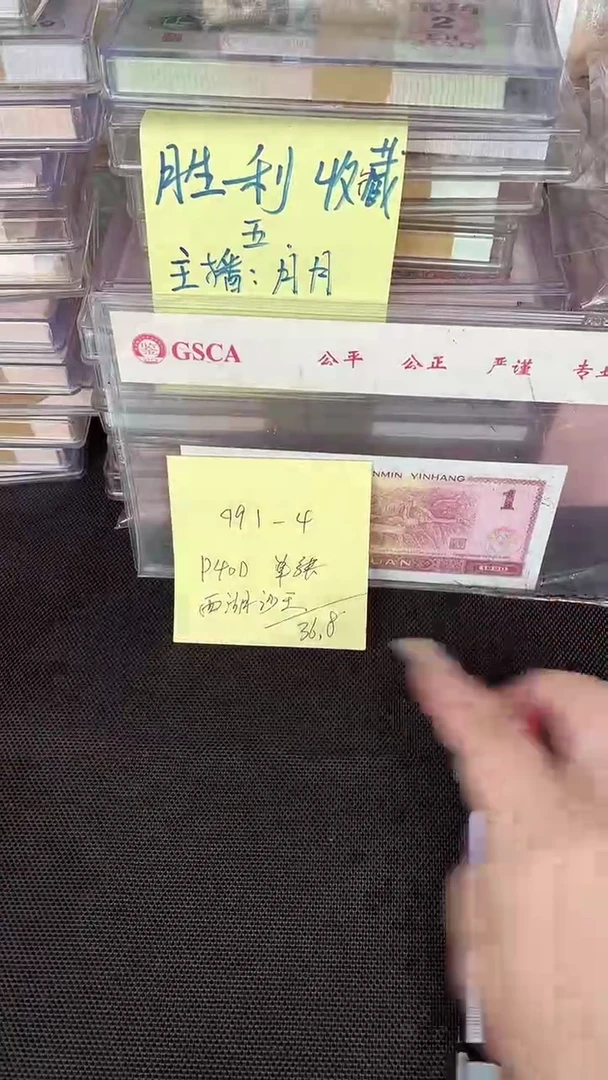 2
胜利收藏
五
主播:月月
GSCA 公平 公正 严谨 专业
NMIN YINHANG
1
991-4
P40D 单张
西湖沙王
36.8
UAN
1990